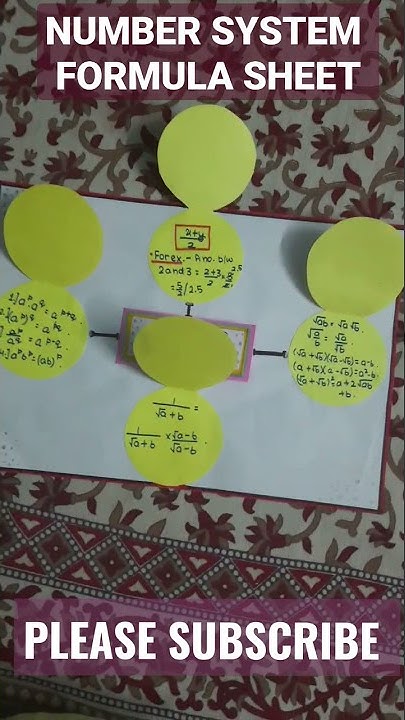 NUMBER SYSTEM
FORMULA SHEET
x+y
2
Forex.- A no. b/w
2 and 3 = 2+3
2
= 5/2 / 2.5
1] aᵖ. a^q = a^p+q.
(aᵖ)^q = a^pq.
aᵖ/a^q = a^p-q.
4] aᵖbᵖ = (ab)ᵖ
√ab = √a √b.
√a/b = √a/√b
(√a + √b)(√a - √b) = a-b.
(a + √b)(a - √b) = a²-b.
(√a + √b)² = a + 2√ab
+b.
1/√a + b =
1/√a + b × √a - b/√a - b.
PLEASE SUBSCRIBE